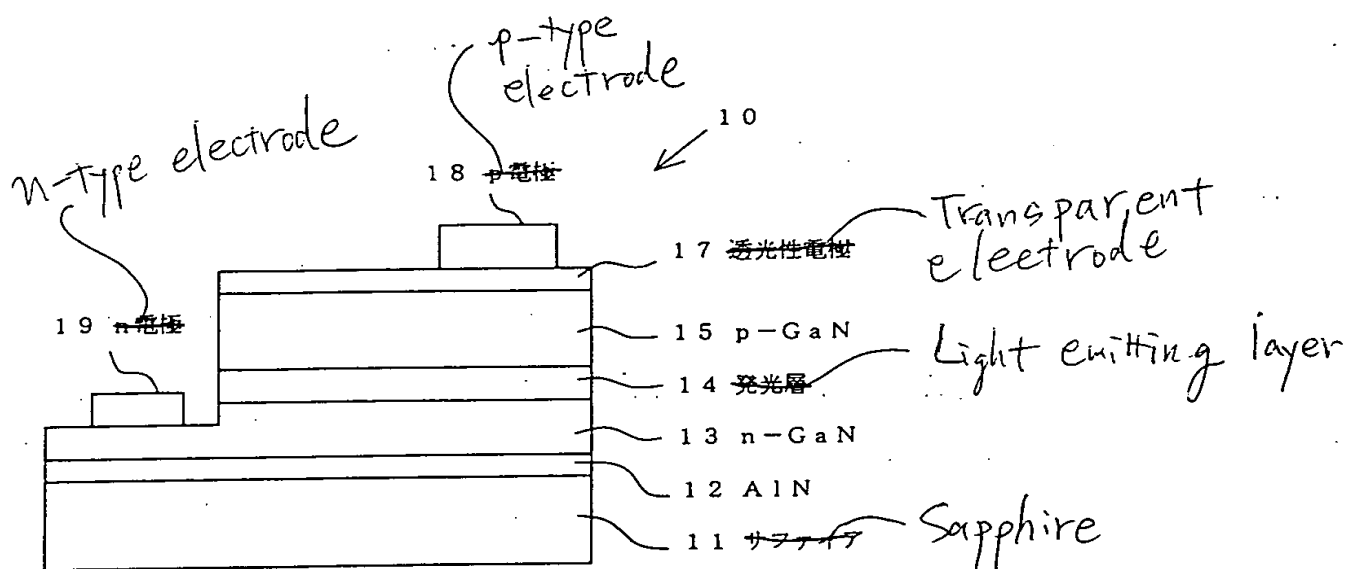 p-type
electrode
n-type electrode
10
18 p電極
17 透光性電極
Transparent
electrode
19 n電極
15 p-GaN
14 発光層
Light emitting layer
13 n-GaN
12 AlN
11 サファイア
Sapphire